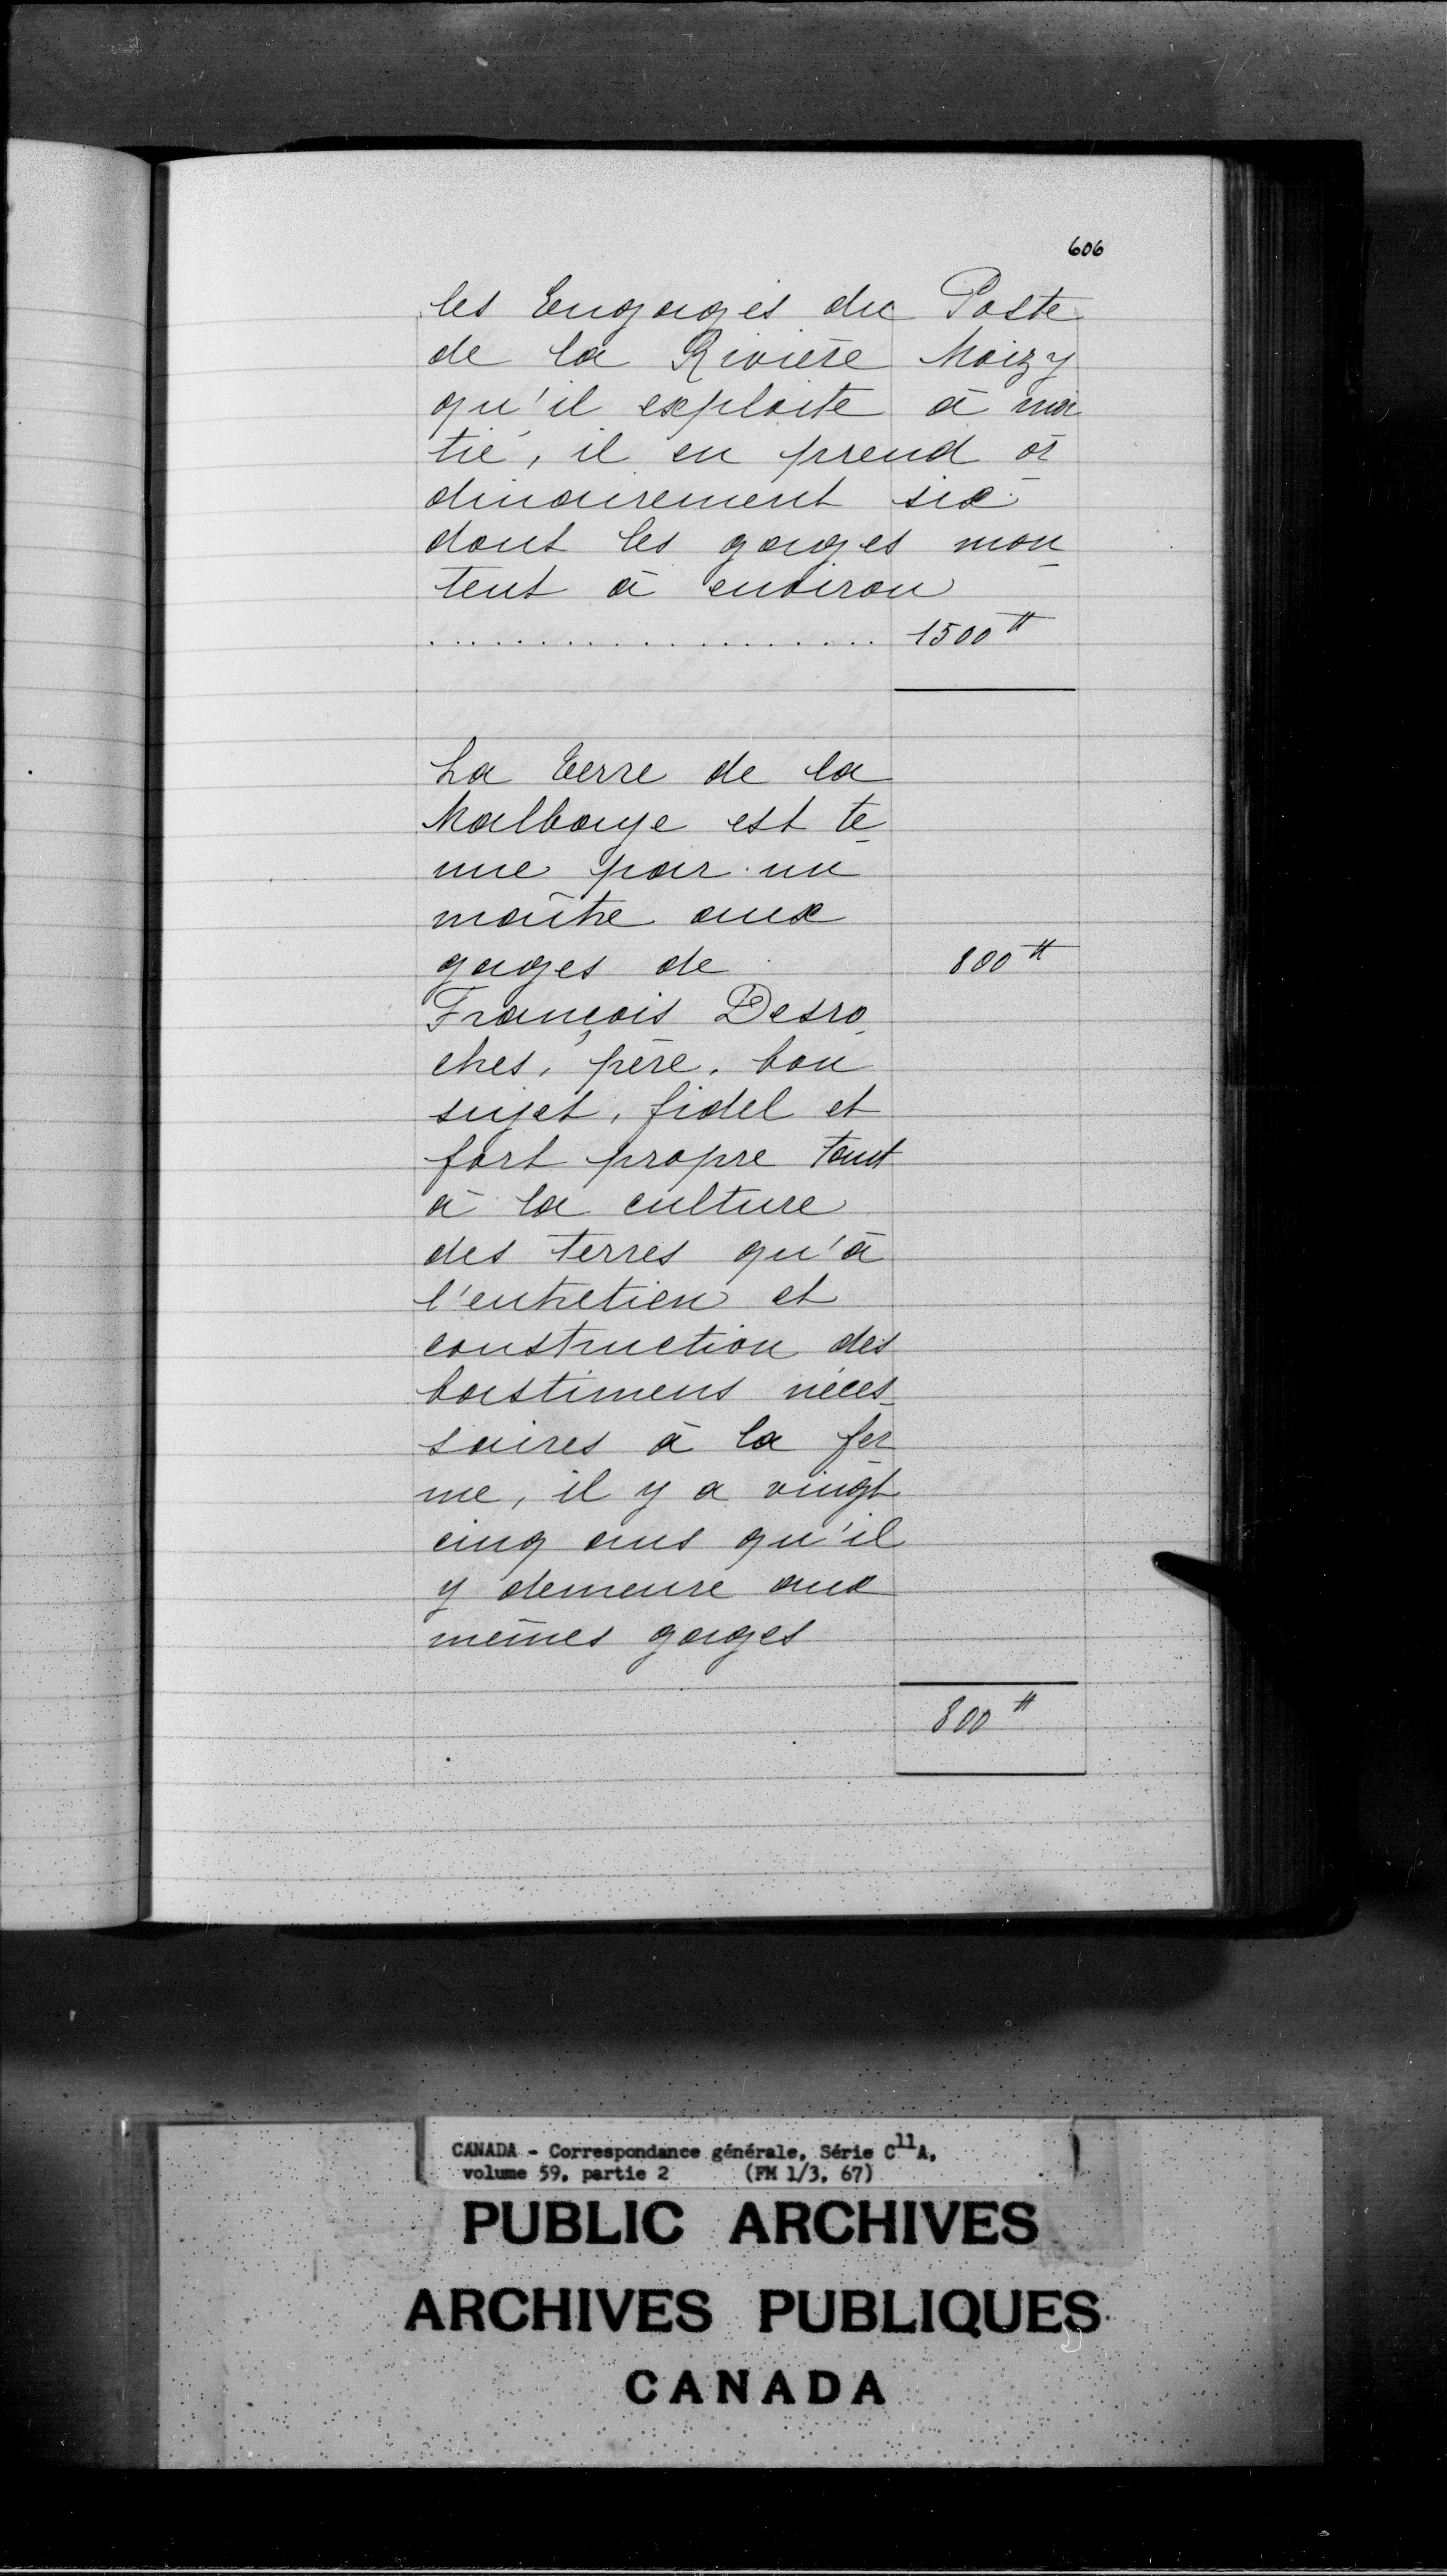 606
les Engagés du Poste
de la Rivière Moizy
qu'il exploite à moi
tié, il en prend or
dinairement six
dont les gages mon_
tent à environ
.................... 1500 ₶
La Terre de la
Malbaye est te_
nue par un
maître aux
gages de 800 ₶
François Desro_
ches, père, bon
sujet, fidel et
fort propre tant
à la culture
des terres qu'à
l'entretien et
construction des
bastimens néces_
saires à la fer
me, il y a vingt
cinq ans qu'il
y demeure aux
mêmes gages
800 ₶
CANADA - Correspondance générale, Série C11A,
volume 59, partie 2 (FM 1/3, 67)
PUBLIC ARCHIVES
ARCHIVES PUBLIQUES
CANADA